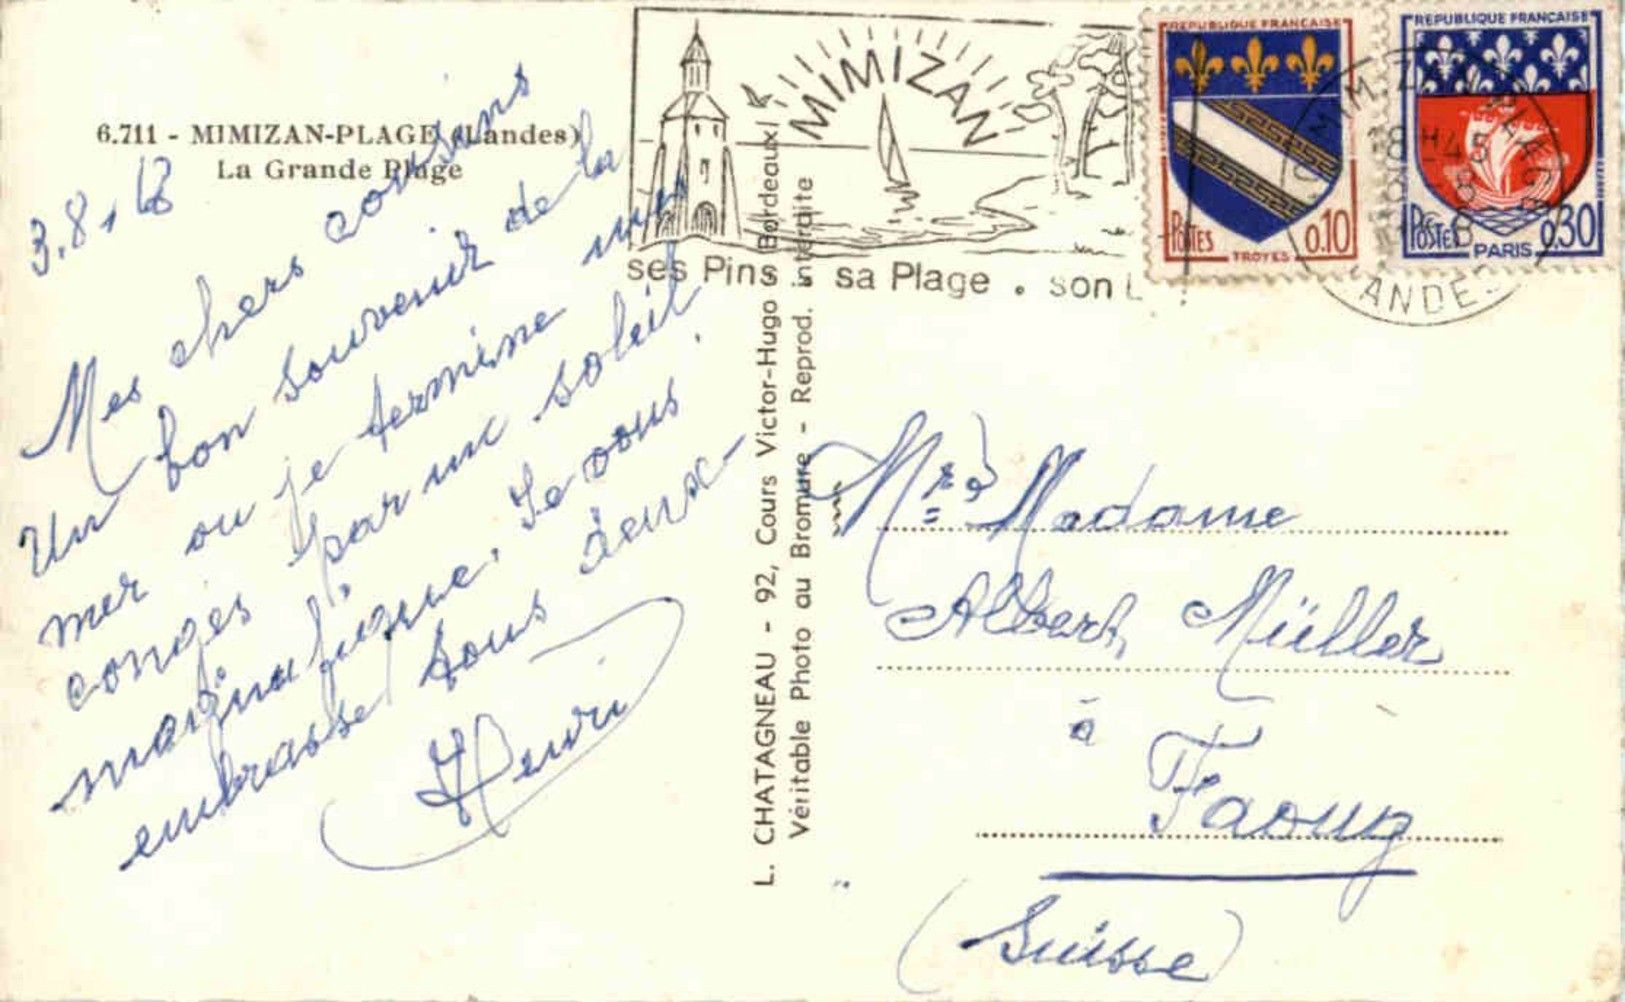 6.711 - MIMIZAN-PLAGE (Landes)
La Grande Plage
3.8.68
Mes chers cousins
Un bon souvenir de la
mer ou je termine mes
congés par un soleil
magnifique. Je vous
embrasse tous deux -
Henri
L. CHATAGNEAU - 92, Cours Victor-Hugo (Bordeaux)
Véritable Photo au Bromure - Reprod. interdite
MIMIZAN
ses Pins sa Plage . son L
REPUBLIQUE FRANÇAISE
POSTES 0.10
TROYES
REPUBLIQUE FRANÇAISE
POSTES 0.30
PARIS
MIMIZAN PLAGE
18H45
LANDES
Mr & Madame
Albert Müller
à
Faoug
(Suisse)